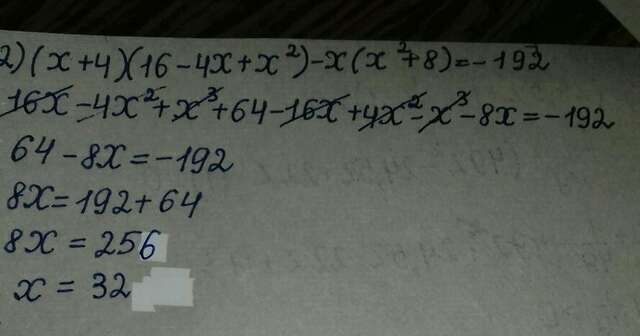 2) (x+4)(16-4x+x²)-x(x²+8)=-192
16x-4x²+x³+64-16x+4x²-x³-8x=-192
64-8x=-192
8x=192+64
8x=256
x=32